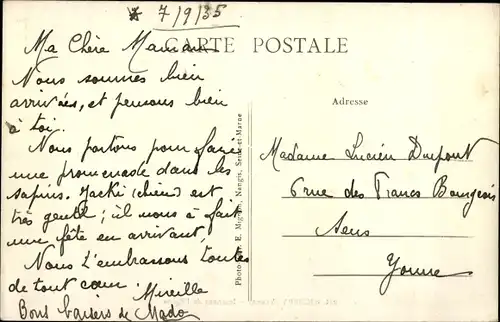 7/9/35
CARTE POSTALE
Ma Chère Maman
Nous sommes bien
arrivées, et pensons bien
à toi.
Nous partons pour faire
une promenade dans les
sapins. Jacki (chien) est
très gentil ; il nous a fait
une fête en arrivant,
Nous t'embrassons toutes
de tout cœur. Mireille
Bons baisers de Mado
Photo-Édit. E. Mignon, Nangis, Seine-et-Marne
Adresse
Madame Lucien Dupont
6 rue des Francs Bourgeois
Sens
Yonne